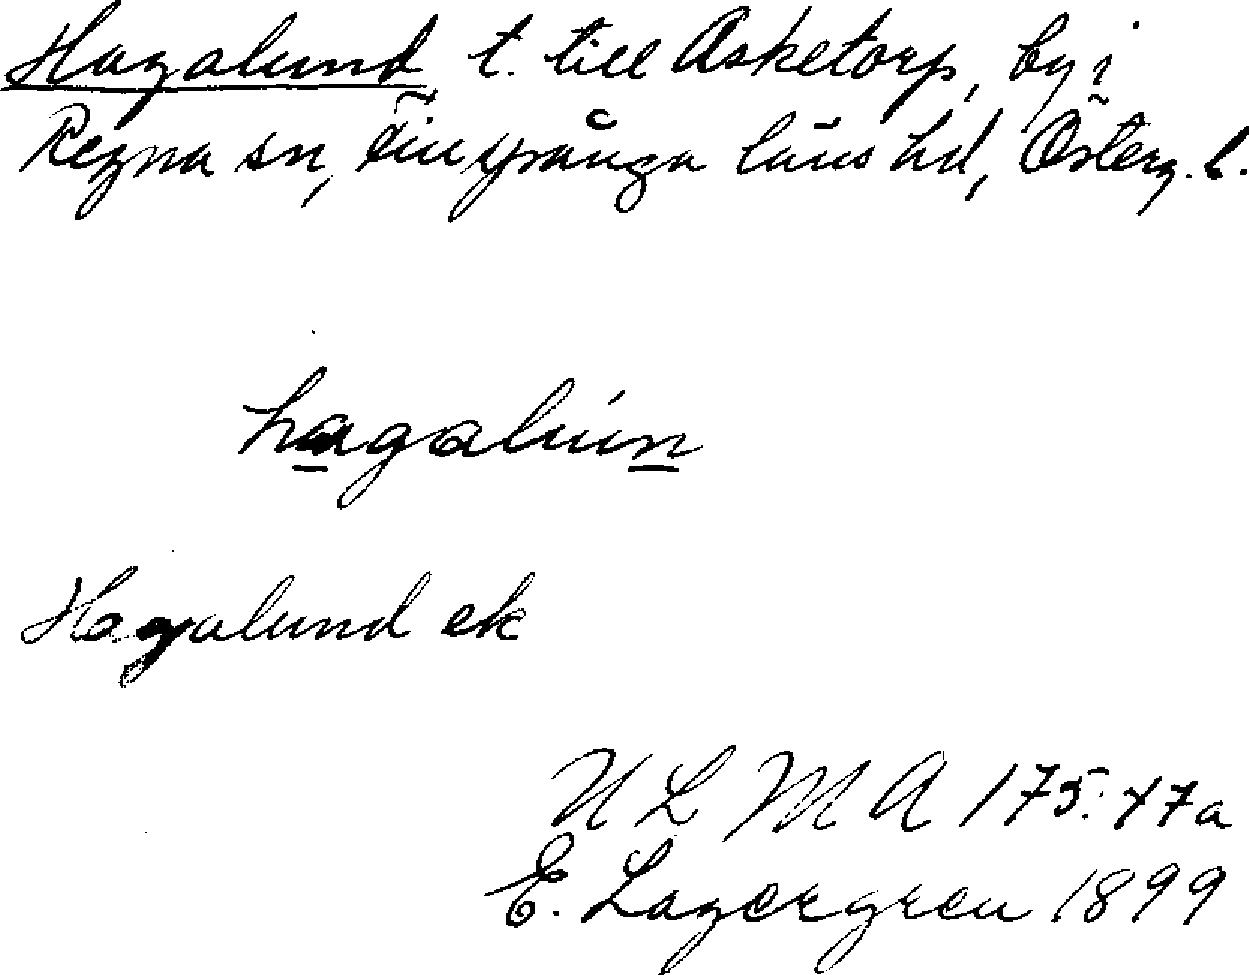 Hagalund t. till Asketorp, by i
Regna sn, Finspånga läns hd, Österg. l.
hagalún
Hagalund ek
U L M A 175:47a
E. Lagergren 1899